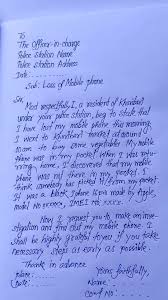 To
The Officer-in-charge
Police Station Name
Police Station Address
Date:........
Sub: Loss of Mobile phone
Sir,
Most respectfully I, a resident of Khandari
under your police station, beg to state that
I have lost my mobile phone this morning.
I went to Khandari market at around
to buy some vegetables. My mobile
phone was in my pocket when I was
my mobile
phone was not there in my pocket. I
think somebody has picked it from my pocket.
It was a phone made by Apple,
model No xxxxxx, IMEI No xxxx.
Now I request you to make an inve-
stigation and find out my mobile phone. I
shall be highly grateful to you if you take
necessary steps as early as possible.
Thanks in advance
Yours faithfully,
Place:......
Name:......
Date: